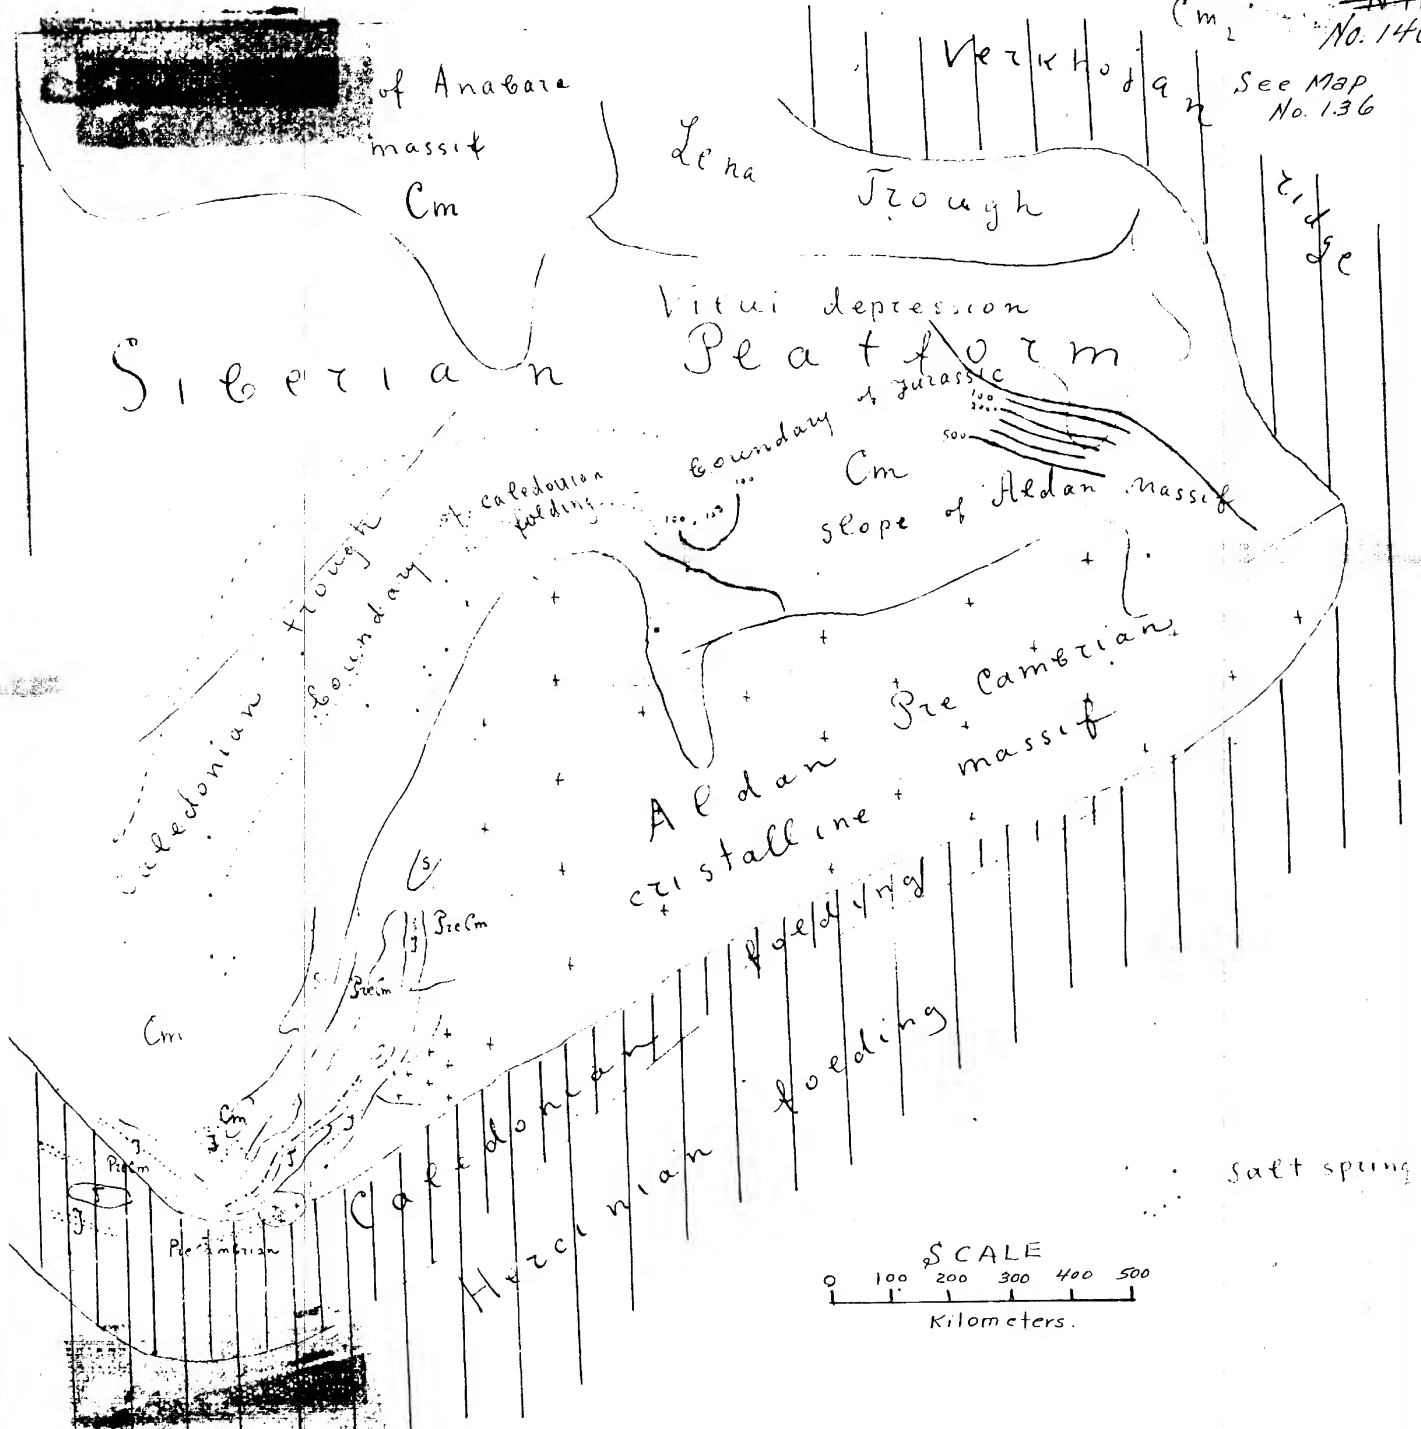 Cm₂
No. 140
See Map
No. 136
Verkhojan
ridge
of Anabara
massif
Cm
Lena
Trough
Vilui depression
Siberian Platform
boundary of Jurassic
100
200
500
Cm
slope of Aldan Massif
100
100
of caledonian
folding
boundary
Caledonian trough
Aldan Pre Cambrian
cristalline massif
S
PreCm
J
PreCm
Cm
Cm
J
J
PreCm
J
J
J
PreCambrian
Caledonian folding
Hercinian folding
Salt spring
SCALE
0 100 200 300 400 500
Kilometers.